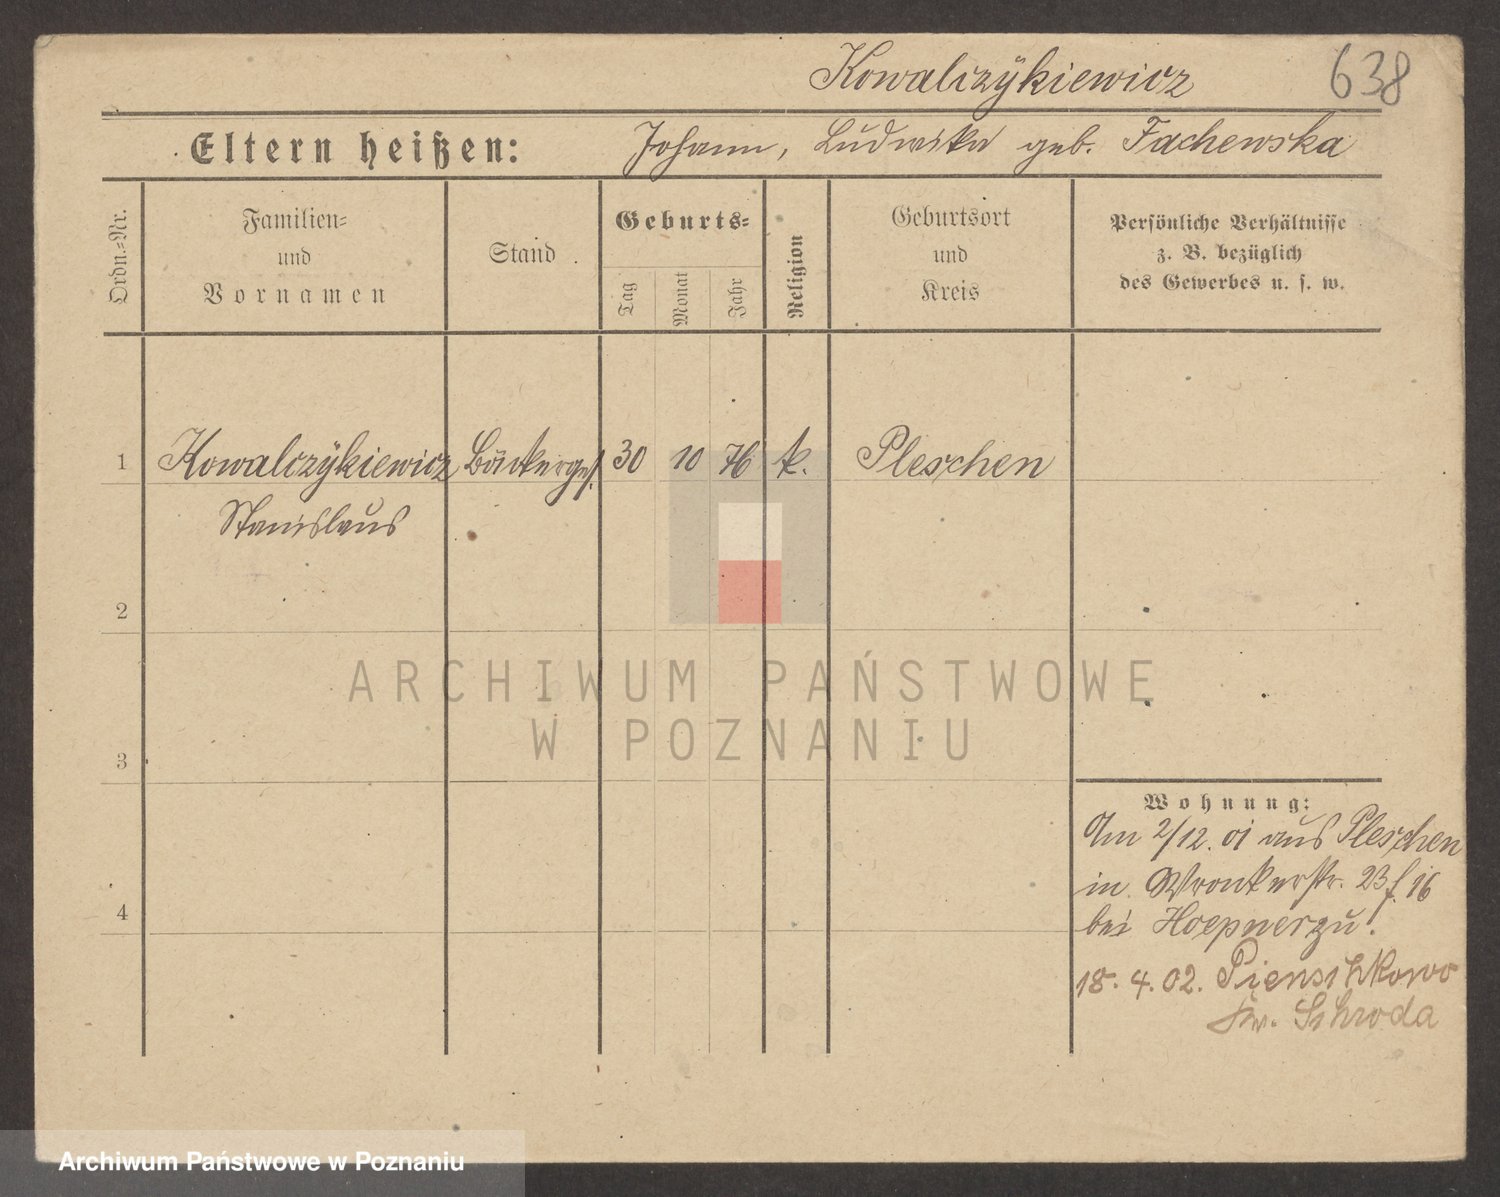 Kowalczÿkiewicz 638
Eltern heißen: Johann, Ludwika geb. Fachewska
Ordn.=Nr.
Familien=
und
Vornamen
Stand
Geburts=
Tag
Monat
Jahr
Religion
Geburtsort
und
Kreis
Persönliche Verhältnisse
z. B. bezüglich
des Gewerbes u. s. w.
1 Kowalczÿkiewicz Bäckerges. 30 10 76 k. Pleschen
Stanislaus
2
3
4
Wohnung:
Am 2/12. 01 aus Pleschen
in Wronkerstr. 23 f. 16
bei Hoepner zu.
18. 4. 02. Pienschkowo
Kr. Schroda
ARCHIWUM PAŃSTWOWE
W POZNANIU
Archiwum Państwowe w Poznaniu